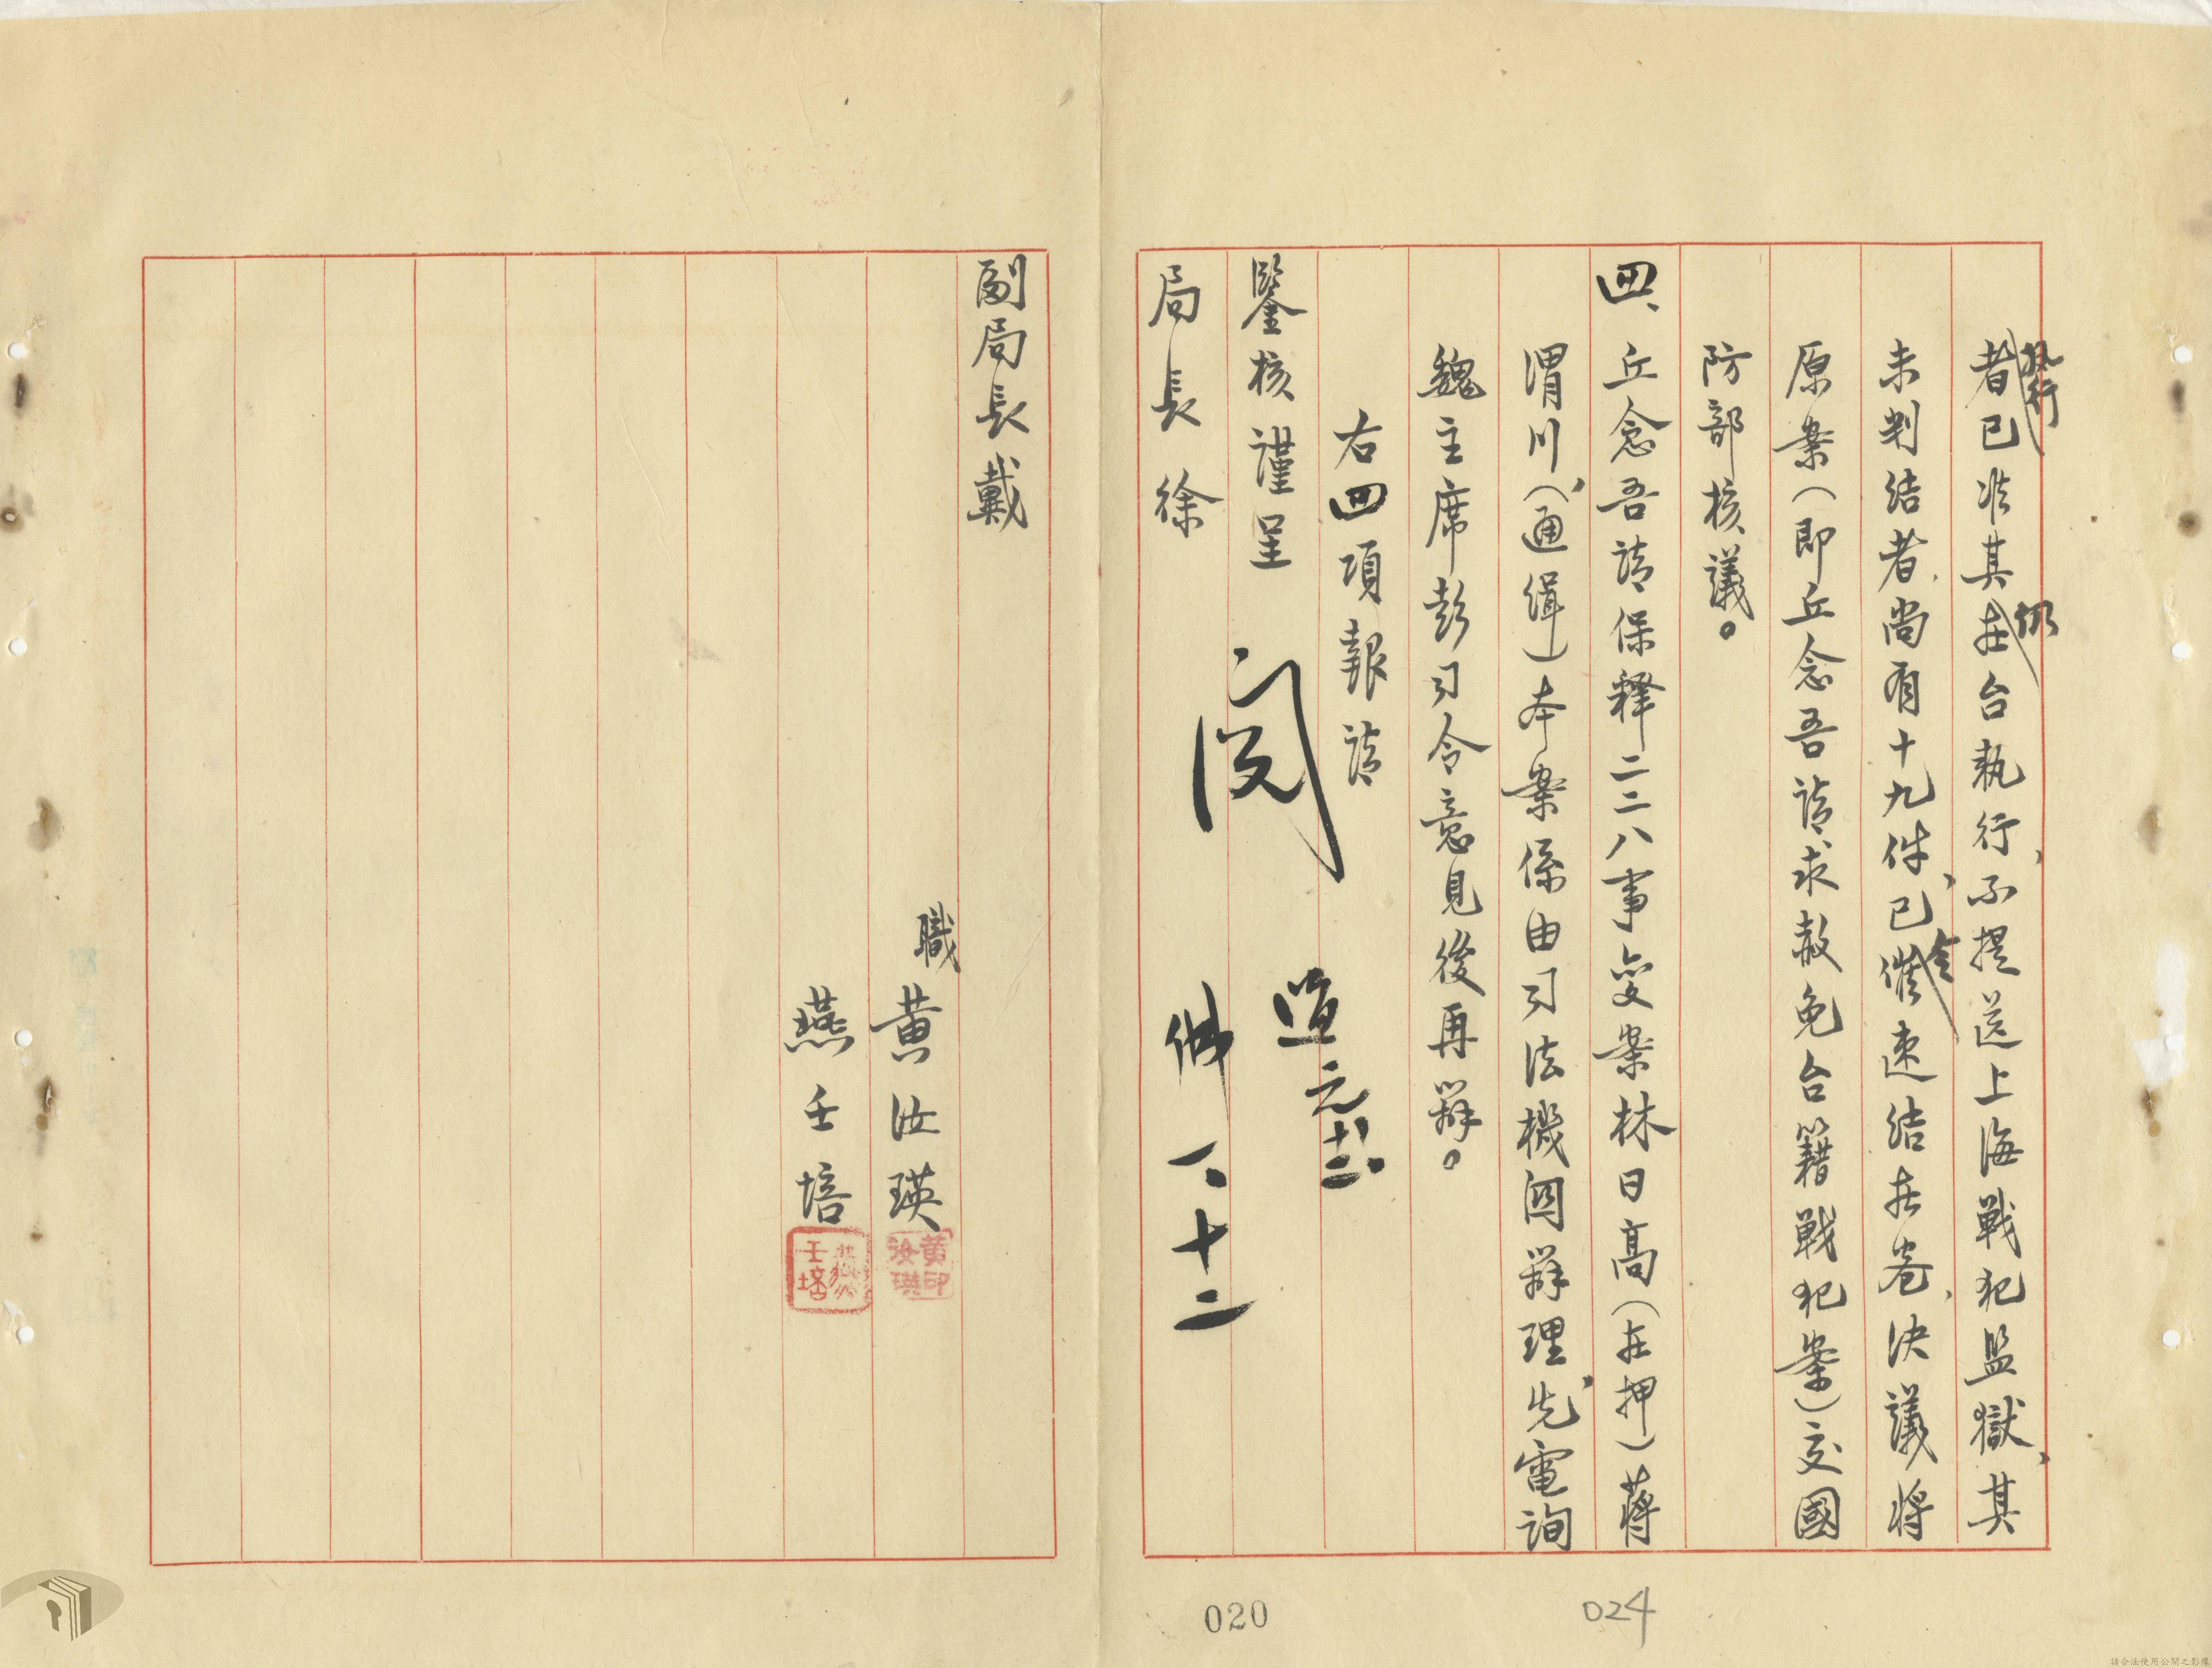 執行
者已准其在台執行、不提送上海戰犯監獄、其
仍
未判結者、尚有十九件、已催速結在卷、決議將
令
原案(即丘念吾請求赦免台籍戰犯案)交國
防部核議。
四、丘念吾請保釋二二八事變案林日高(在押)蔣
渭川(通緝)、本案係由司法機關辦理、先電詢
魏主席彭司令意見後再辦。
右四項報請
鑒核謹呈
局長徐
閱
元
十二
一、十二
副局長戴
職黃汝瑛
燕壬培
黃印汝瑛
燕壬培
020
024
請合法使用公開之影像